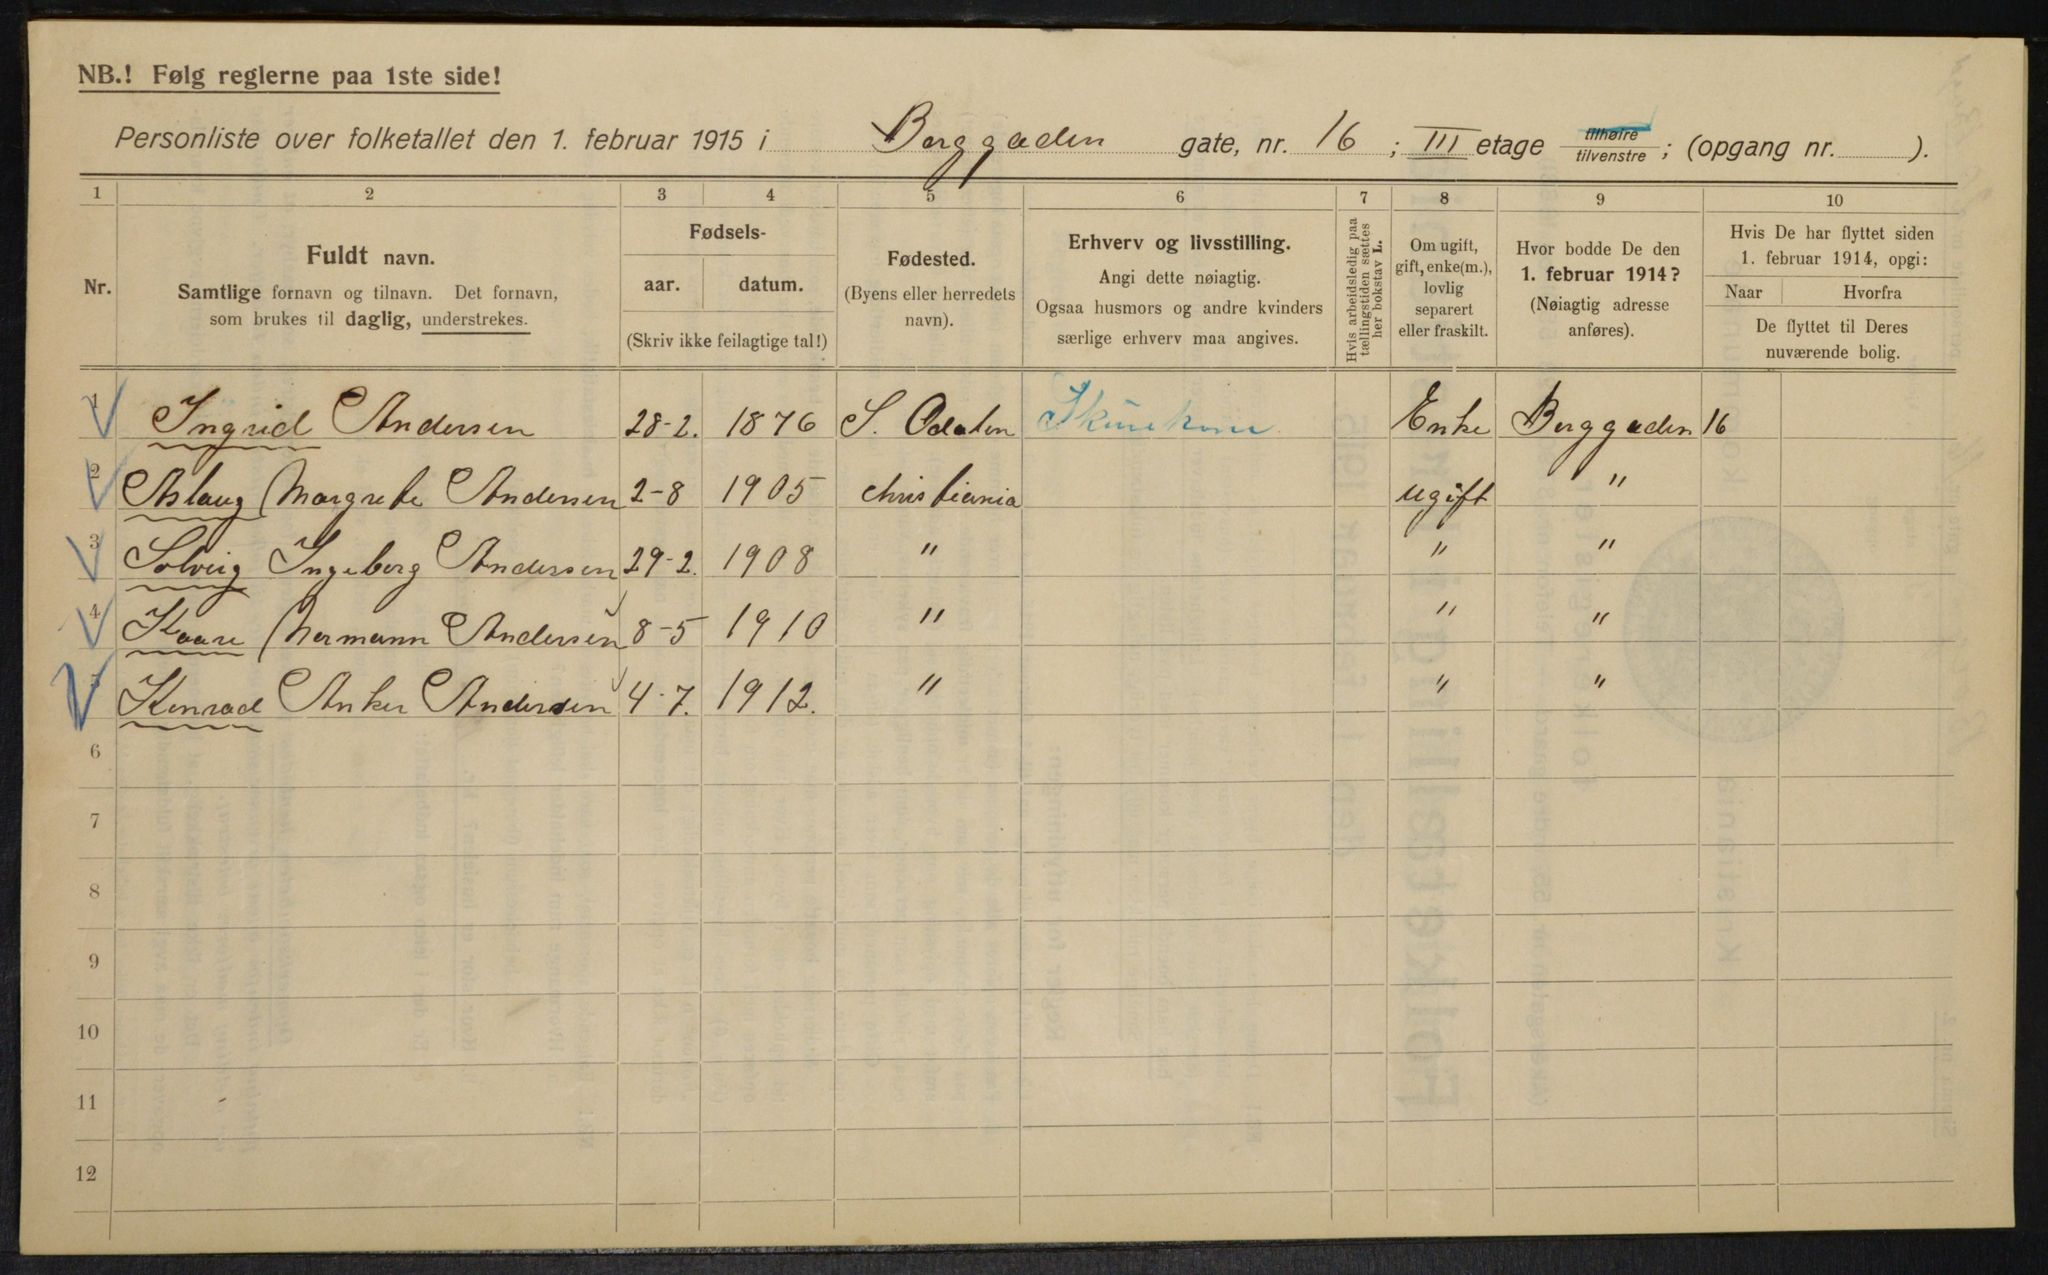 NB.! Følg reglerne paa 1ste side!
Personliste over folketallet den 1. februar 1915 i Berggaden gate, nr. 16 ; III etage tilhøire/tilvenstre ; (opgang nr. ).
1 2 3 4 5 6 7 8 9 10
Nr.
Fuldt navn.
Samtlige fornavn og tilnavn. Det fornavn,
som brukes til daglig, understrekes.
Fødsels-
aar. datum.
(Skriv ikke feilagtige tal!)
Fødested.
(Byens eller herredets
navn).
Erhverv og livsstilling.
Angi dette nøiagtig.
Ogsaa husmors og andre kvinders
særlige erhverv maa angives.
Hvis arbeidsledig paa
tællingstiden sættes
her bokstav L.
Om ugift,
gift, enke(m.),
lovlig
separert
eller fraskilt.
Hvor bodde De den
1. februar 1914?
(Nøiagtig adresse
anføres).
Hvis De har flyttet siden
1. februar 1914, opgi:
Naar Hvorfra
De flyttet til Deres
nuværende bolig.
1 Ingrid Andersen 28-2. 1876 S. Odalen Enke Berggaden 16
2 Aslaug Margrete Andersen 2-8 1905 christiania ugift "
3 Solveig Ingeborg Andersen 29-2. 1908 " " "
4 Kaare Normann Andersen 8-5 1910 " " "
5 Konrad Anker Andersen 4-7. 1912. " " "
6
7
8
9
10
11
12